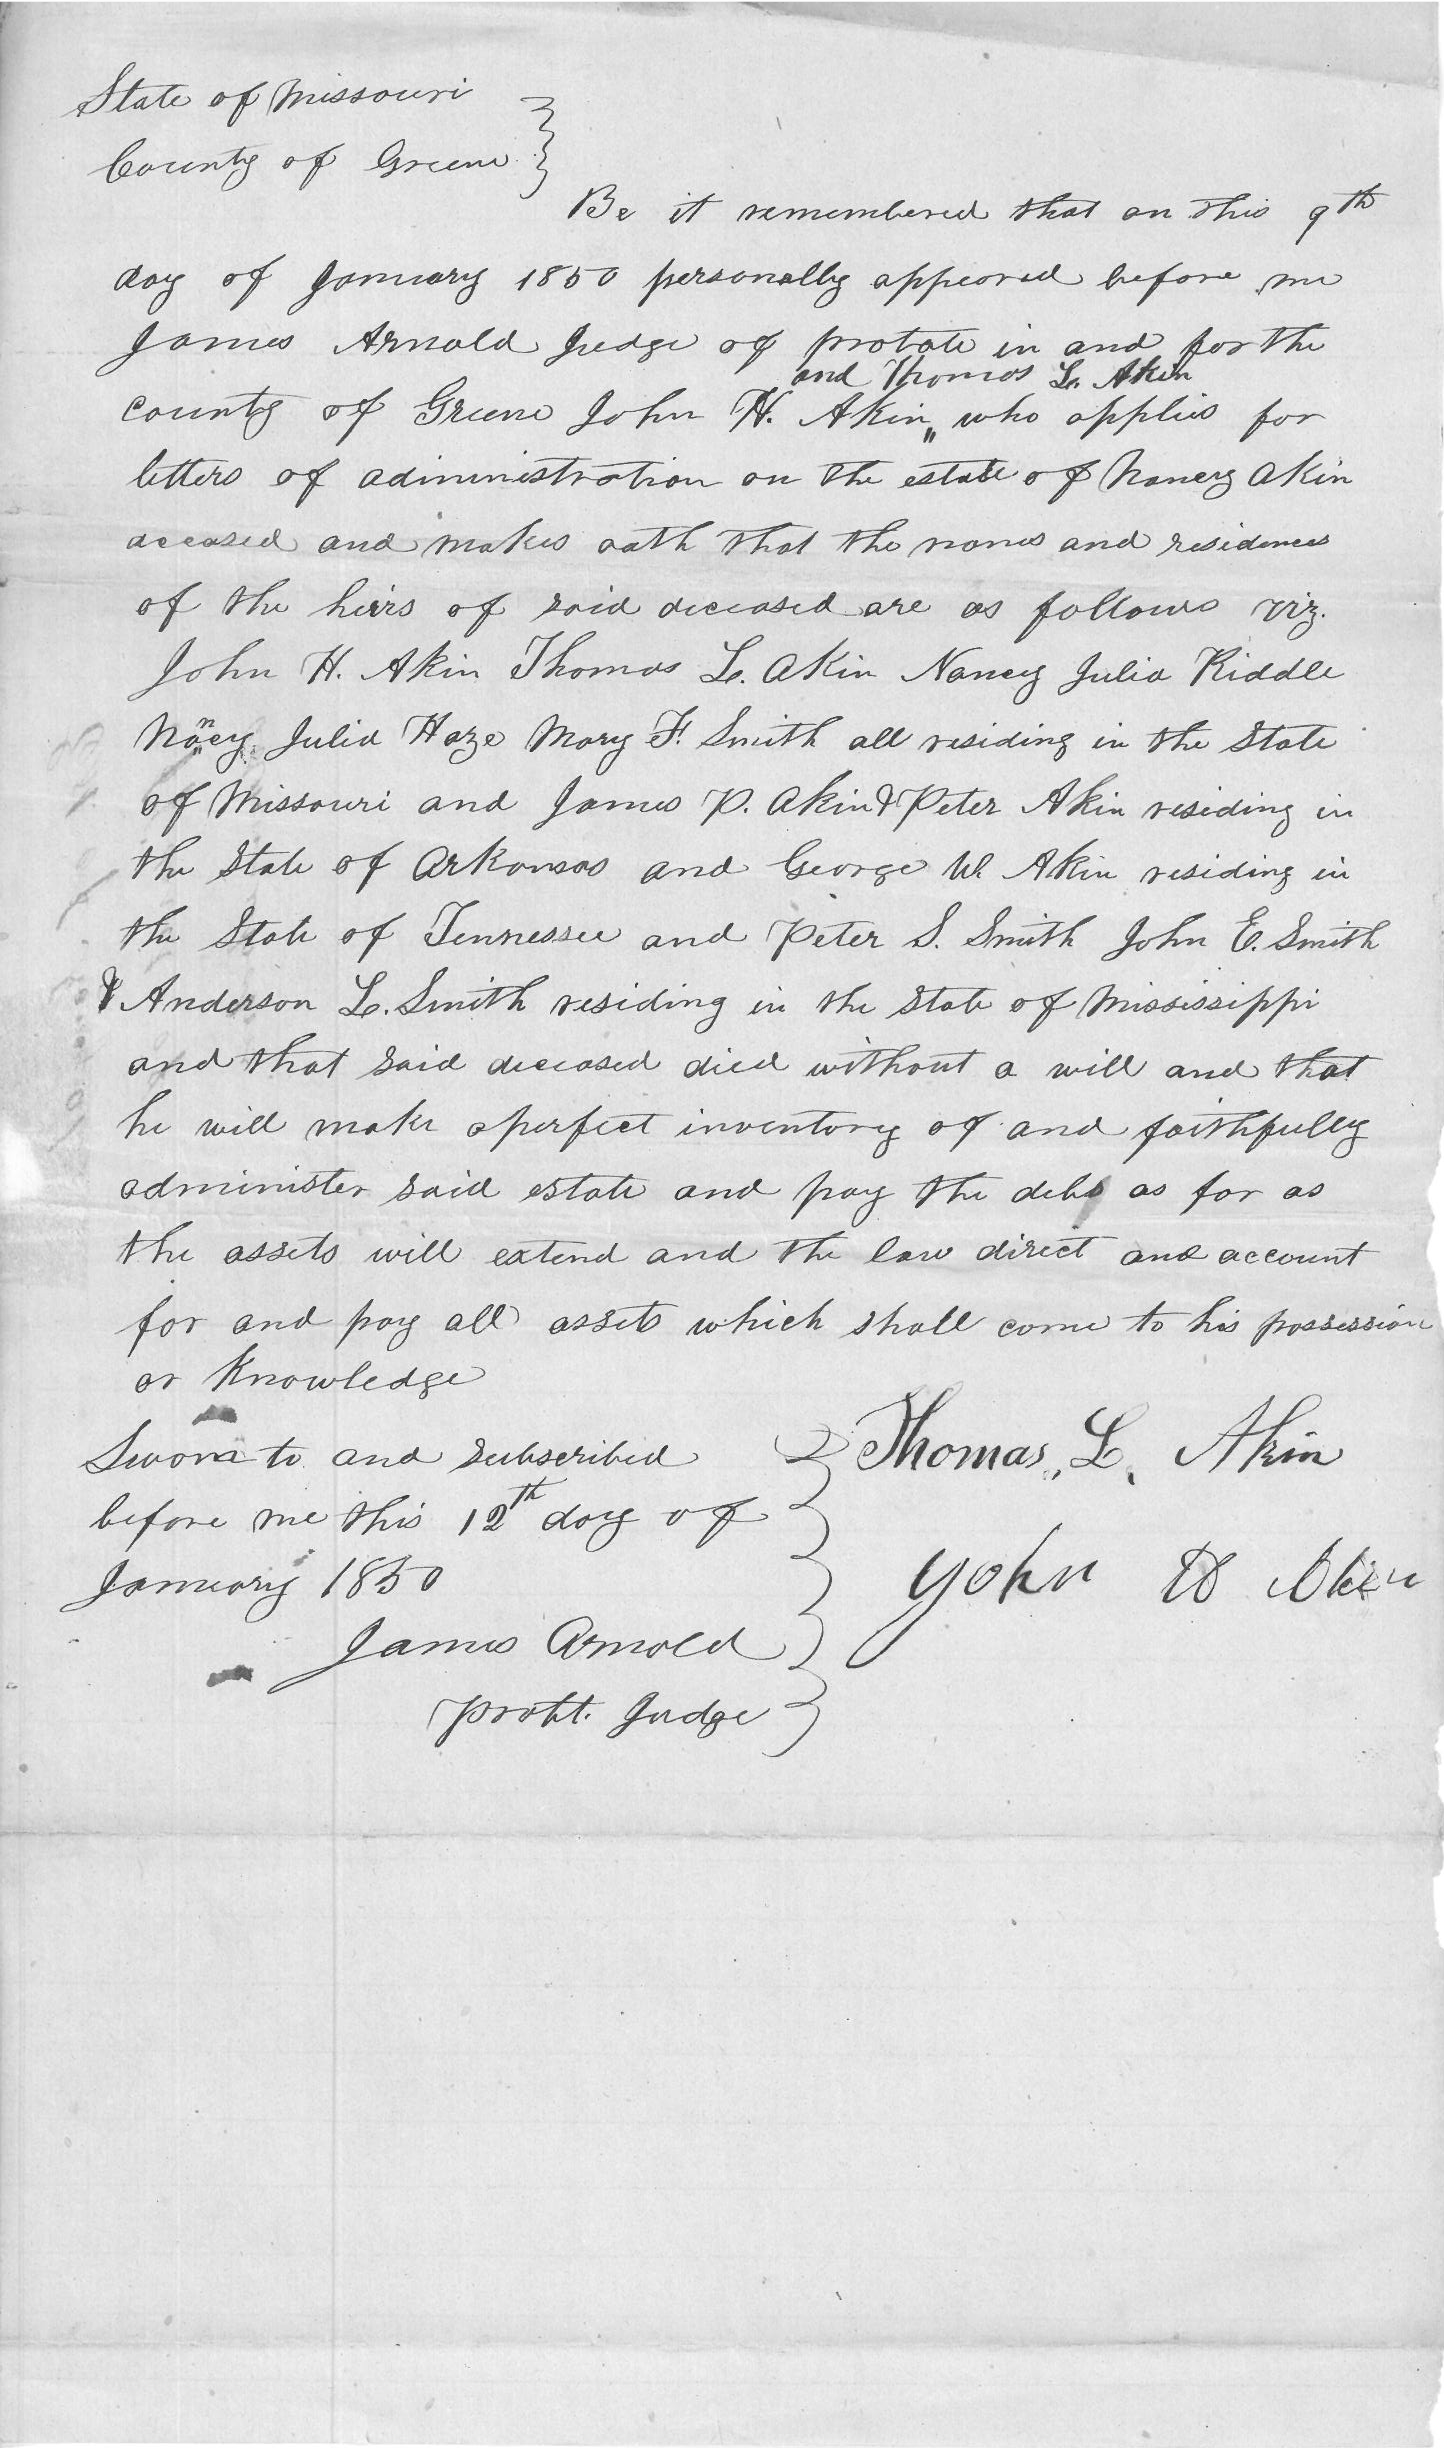 State of Missouri
County of Greene
Be it remembered that on this 9th
day of January 1850 personally appeared before me
James Arnold Judge of probate in and for the
and Thomas L. Akin
county of Greene John H. Akin " who applies for
letters of administration on the estate of Nancy Akin
deceased and makes oath that the names and residences
of the heirs of said deceased are as follows viz.
John H. Akin Thomas L. Akin Nancy Julia Riddle
Nancy Julia Haze Mary F. Smith all residing in the State
of Missouri and James P. Akin & Peter Akin residing in
the State of Arkansas and George W. Akin residing in
the State of Tennessee and Peter S. Smith John E. Smith
& Anderson L. Smith residing in the State of Mississippi
and that said deceased died without a will and that
he will make a perfect inventory of and faithfully
administer said estate and pay the debs as far as
the assets will extend and the law direct and account
for and pay all assets which shall come to his possession
or Knowledge
Sworn to and subscribed
before me this 12th day of
January 1850
James Arnold
Probt. Judge
Thomas L. Akin
John H Akin